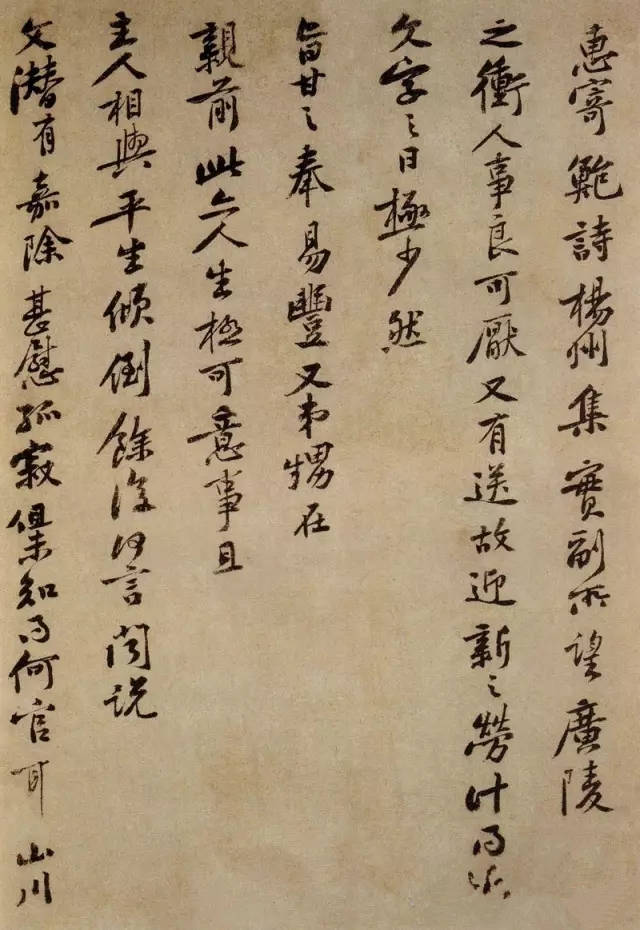 惠寄鲍詩楊州集實副所望廣陵
之衝人事良可厭又有送故迎新之勞計得近
文字之日極少然
旨甘之奉易豐又弟甥在
親前此亦人生極可意事且
主人相與平生傾倒餘復何言聞説
文潛有嘉除甚慰孤寂但未知得何官耳山川